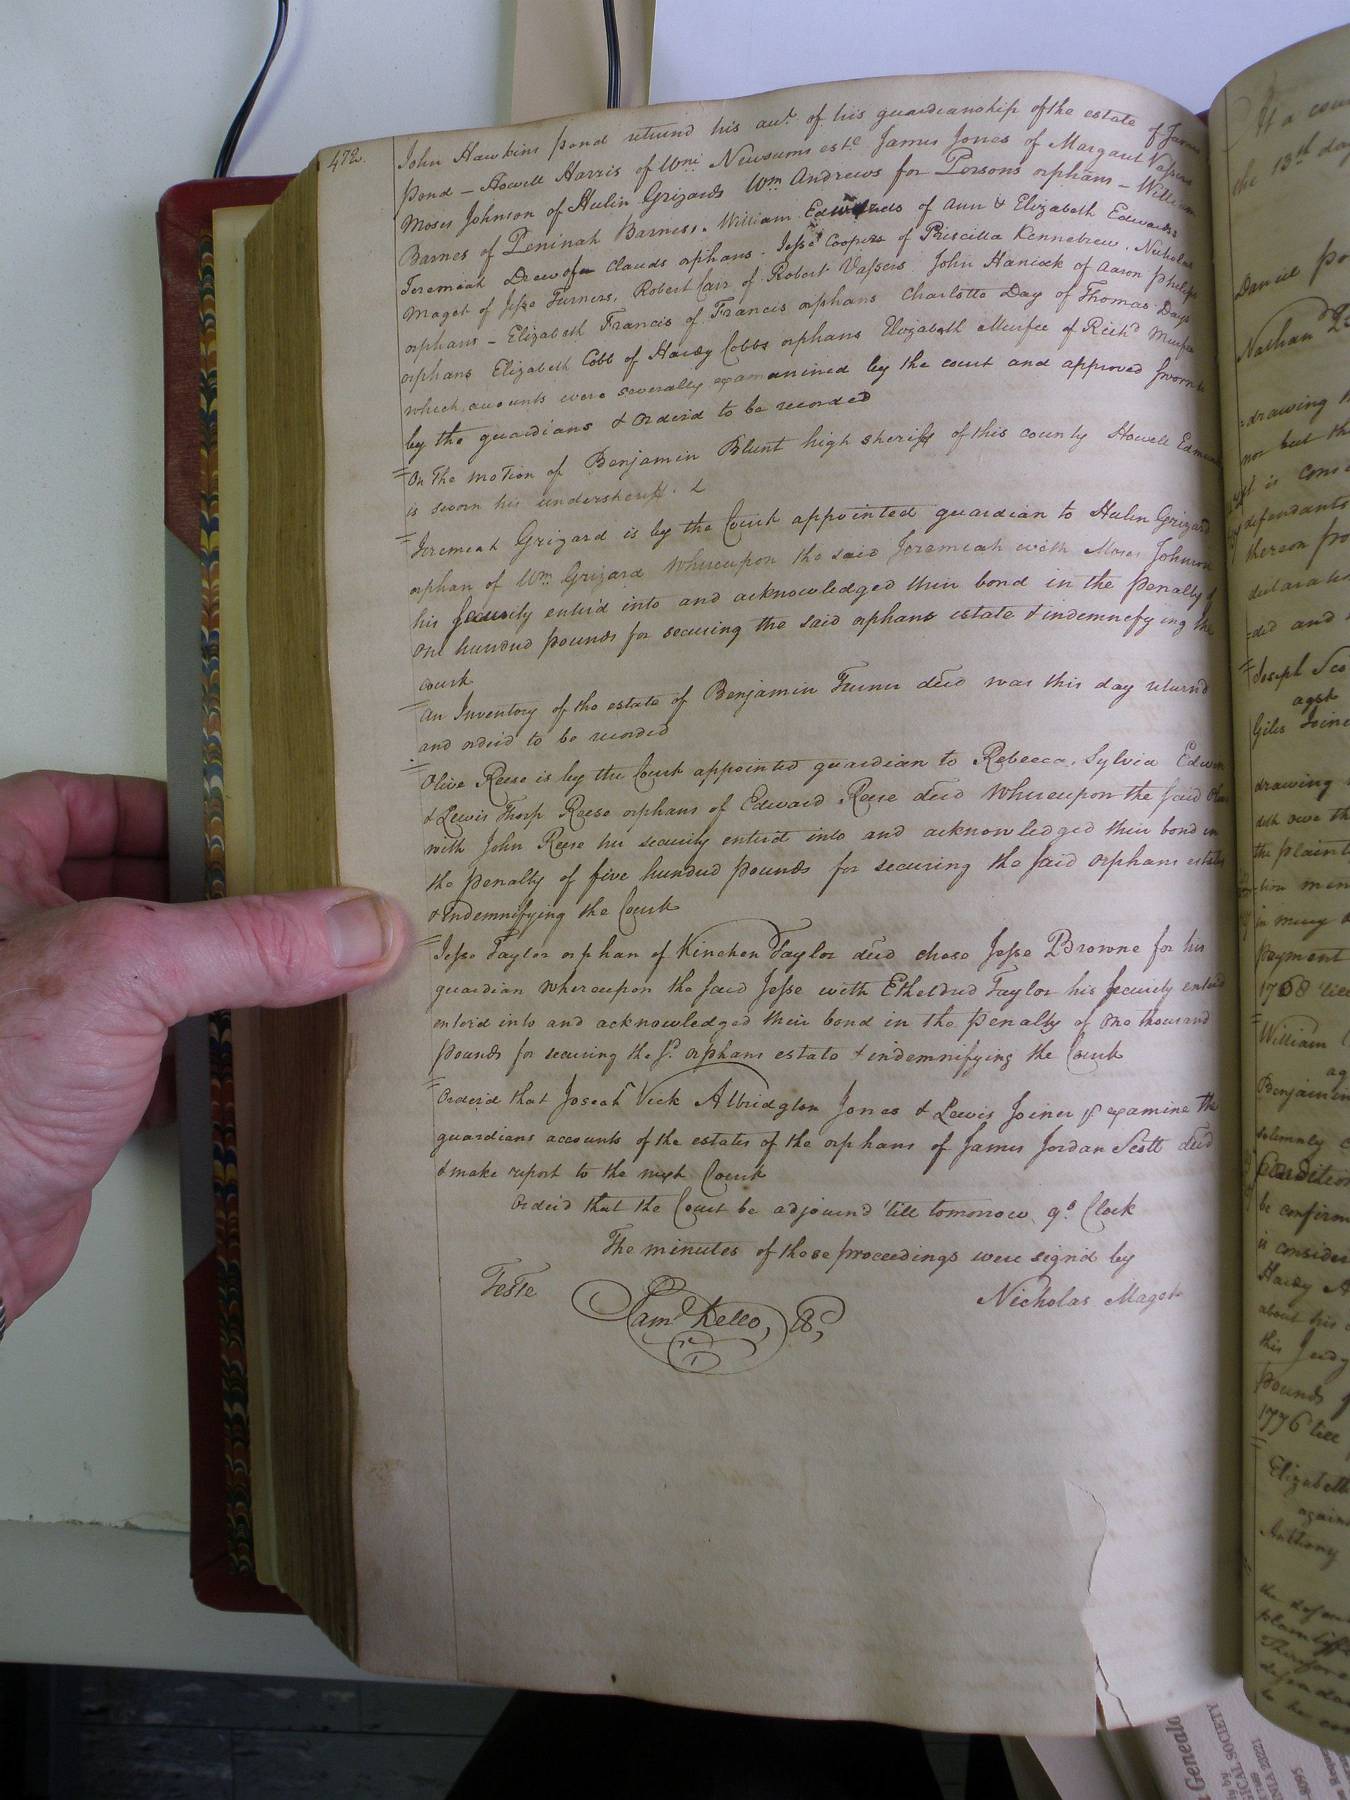 472.
John Hawkins Pond returnd his acct. of his guardianship of the estate of James
Pond - Howell Harris of Wm. Newsums este. James Jones of Margaret Vassers
Moses Johnson of Hulin Grizards Wm Andrews for Persons orphans - William
Barnes of Peninah Barness. William Edwards of Ann & Elizabeth Edwards
Jeremiah Drew of Clauds orphans. Jesse Coopers of Priscilla Kennebrew. Nicholas
Maget of Jesse Turners, Robert Carr of Robert Vassers John Hancock of Aaron Philips
orphans - Elizabeth Francis of Francis orphans Charlotte Day of Thomas Days
orphans Elizabeth Cobb of Hardy Cobbs orphans Elizabeth Murfee of Richd Murfee
which accounts were severally examanined by the court and approved sworn to
by the guardians & Orderd to be recorded
On the motion of Benjamin Blunt high sheriff of this county Howell Edmun
is sworn his undersheriff.
Jeremiah Grizard is by the Court appointed guardian to Hulin Grizard
orphan of Wm Grizard Whereupon the said Jeremiah with Moses Johnson
his security enterd into and acknowledged their bond in the penalty of
One hundred pounds for securing the said orphans estate & indemnefying the
court
An Inventory of the estate of Benjamin Turner decd was this day returnd
and orderd to be recorded
Olive Reese is by the Court appointed guardian to Rebecca, Sylvia Edwin
& Lewis Thorp Reese orphans of Edward Reese decd Whereupon the said Olive
with John Reese her security enterd into and acknowledged their bond in
the penalty of five hundred pounds for securing the said orphans estates
& Indemnifying the Court
Jesse Taylor orphan of Kinchen Taylor decd chose Jesse Browne for his
guardian Whereupon the said Jesse with Etheldred Taylor his security enterd
enterd into and acknowledged their bond in the penalty of One thousand
pounds for securing the sd. orphans estate & indemnifying the Court
Orderd that Josiah Vick Albridgton Jones & Lewis Joiner jr examine the
guardians accounts of the estates of the orphans of James Jordan Scott decd
& make report to the next Court
Orderd that the Court be adjournd 'till tomorrow 9 o Clock
The minutes of these proceedings were signd by
Teste
Nicholas Maget
Saml Kello,
At a cou
the 13th day
Daniel Po
Nathan
=drawing
nor but th
it is cons
defendants
thereon fro
declaratio
=ded and
Joseph Sco
agst
Giles Joine
drawing
doth owe th
the plaint
=tion men
in mercy
Payment
1768 'till
William
ag
Benjamin
solemnly
Condition
be confirm
is consider
Hardy
about his
this Judg
Pounds
1776 till
Elizabeth
again
Anthony
the defen
plaintiff
Therefore
defendan
to be con
Genealo
by
ICAL SOCIETY
NIA 23221
-8095